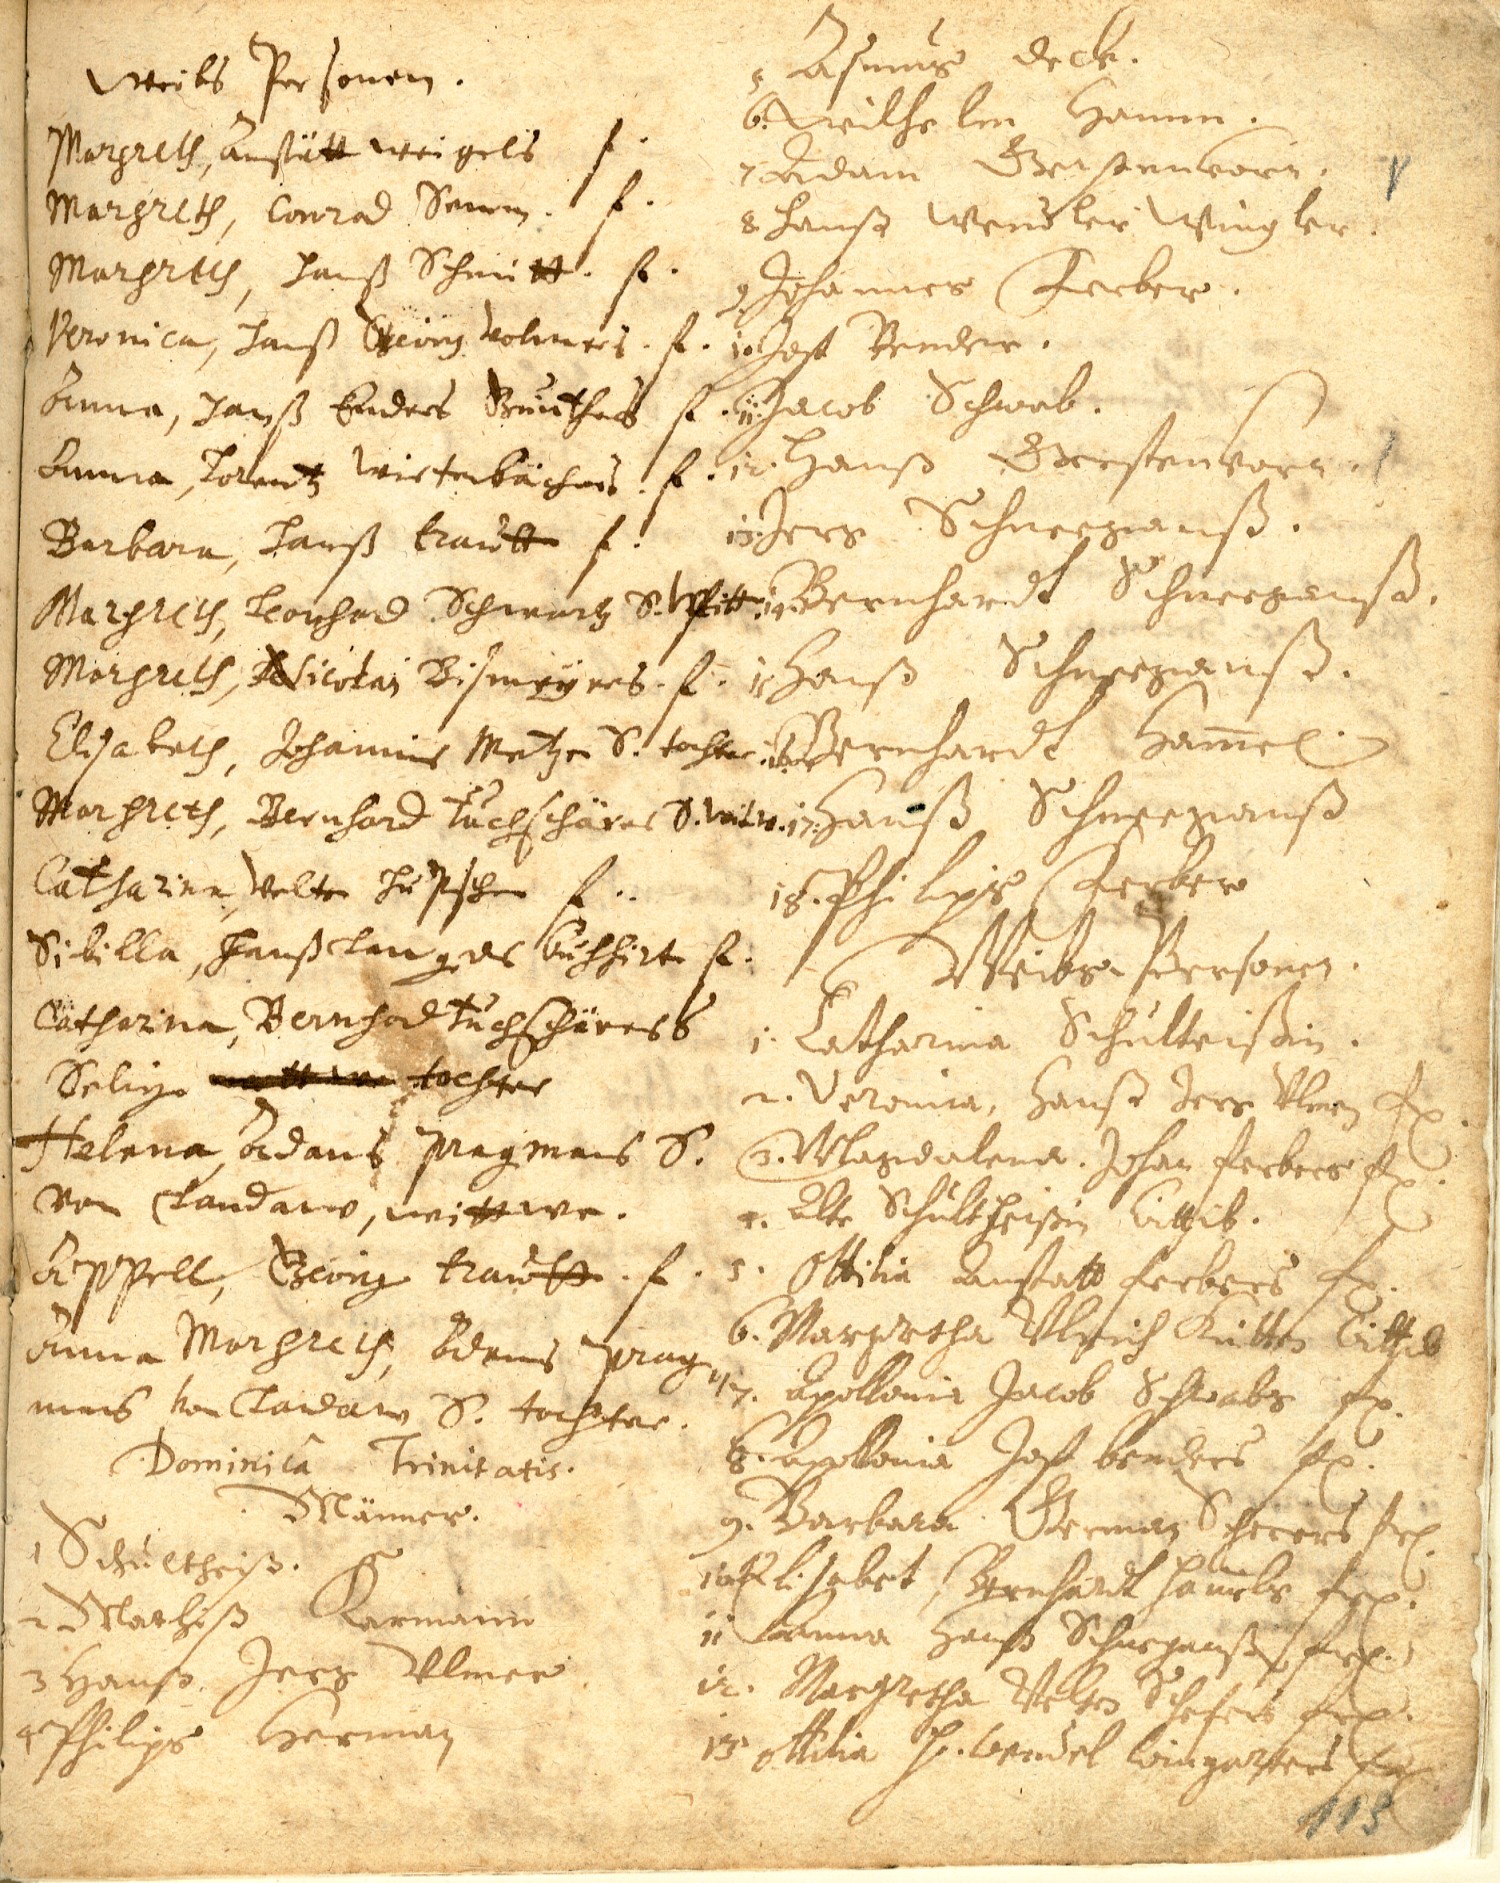 Weibs Personen.
Margreth, Anstätt Weigels f.
Margreth, Conrad Semm. f.
Margreth, Hanß Schmitt. f.
Veronica, Hanß Georg Volmers. f.
Anna, Hanß Enders Günthers f.
Anna, Lorentz Wirtenbächers. f.
Barbara, Hanß trautt f.
Margreth, Leonhard Schwartz S. Witt.
Margreth, Nicolai Bismeyers. f.
Elisabeth, Johannis Metzer S. tochter.
Margreth, Bernhard Tuchschärers S. witw.
Catharina, Velte f.
Sibilla, Hanß Langes Kuhhirt f.
Catharina, Bernhard Tuchschärers
Selige tochter
Helena, Adams pragmans S.
von Landaw, wittwe.
Appell, Georg trautt. f.
Anna Margreth, Adams prag
mans von Landaw S. tochter.
Dominica Trinitatis.
Männer.
1 Schultheiß.
2 Mathiß Karmann
3 Hanß Jerg Ulmer
4 Philips Herman
5 Asmus Deck.
6. Wilhelm Hamm.
7 Adam Gerstenkorn.
8 Hanß Wendler Wingler.
9 Johannes Ferber.
10 Jost Bender.
11. Jacob Schwab.
12. Hanß Gerstenkorn.
13. Jerg Schneeganß.
14. Bernhardt Schneeganß.
15 Hanß Schneeganß.
16. Bernhardt Hammel.
17. Hanß Schneeganß
18. Philips Ferber
Weibs Personen.
1. Catharina Schulteißin.
2. Veronica, Hanß Jerg Ulmers fr.
3. Magdalena. Johan ferbers fr.
4. Alte Schultheißin Wittib.
5. Ottilia Anstatt ferbers fr.
6. Margretha Ulrich Wittib
7. Apollonia Jacob Schwabs fr.
8. Apollonia Jost benders fr.
9. Barbara German Scherers fr.
10. Elisabet, Bernhardt Hamels fr.
11 Anna Hanß Schneeganß fr.
12. Margretha Velten Schefers fr.
13 Ottilia H. Wendel Wingarters fr.
115